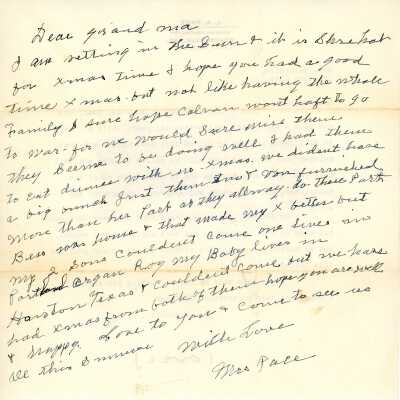 Dear grand ma
I am setting in the Sun & it is Sure hot
for xmas time I hope you had a good
time xmas. but not like having the whole
Family I sure hope Calvan wont haft to go
to war. for we would Sure miss them
they Seeme to be doing well I had them
to eat dinner with us. xmas. we dident have
a big bunch Just them &
more than her Part as they allway. do there Part
Bess was home & that made my X better but
my 2 Sons couldent come one lives in
Portland Organ Roy my Baby lives in
Houston Texas & couldent come but we have
had xmas from both of them hope you are well
& Happy. Love to you & come to see us
all this Summer
With Love
Mrs Pace